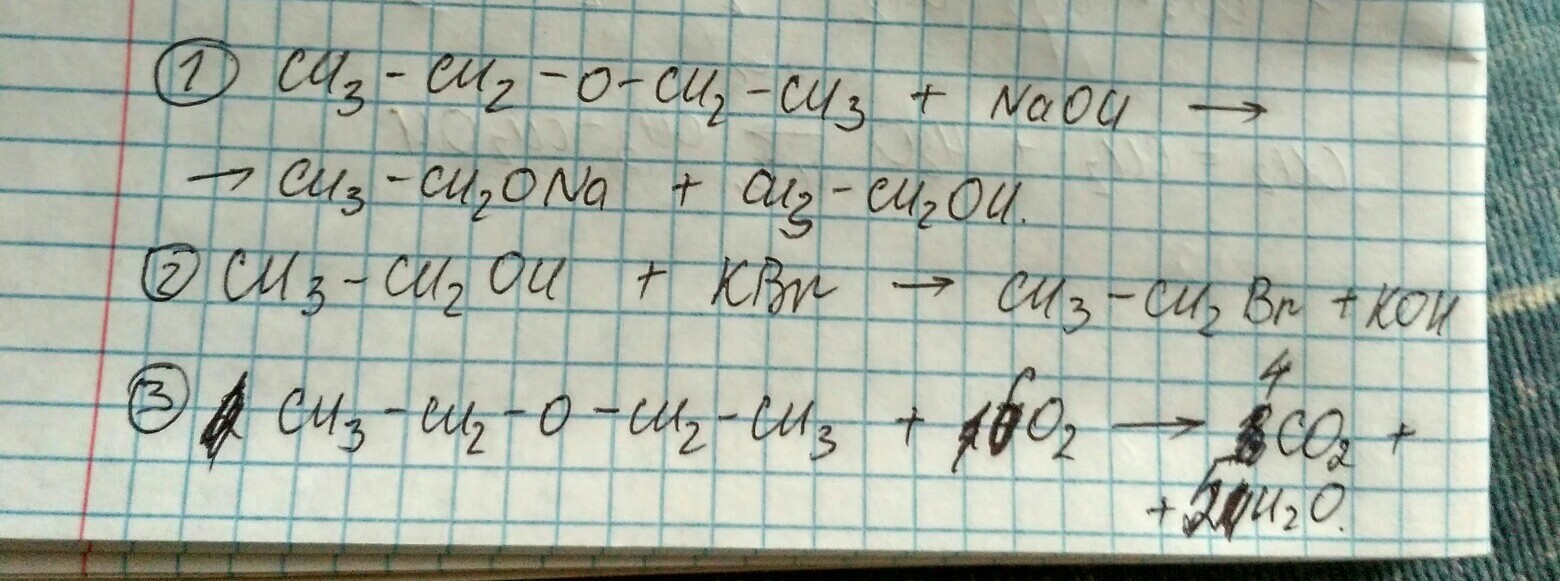 ① CH₃-CH₂-O-CH₂-CH₃ + NaOH →
→ CH₃-CH₂ONa + CH₃-CH₂OH.
② CH₃-CH₂OH + KBr → CH₃-CH₂Br + KOH
③ CH₃-CH₂-O-CH₂-CH₃ + 6O₂ → 4CO₂ +
+ H₂O.